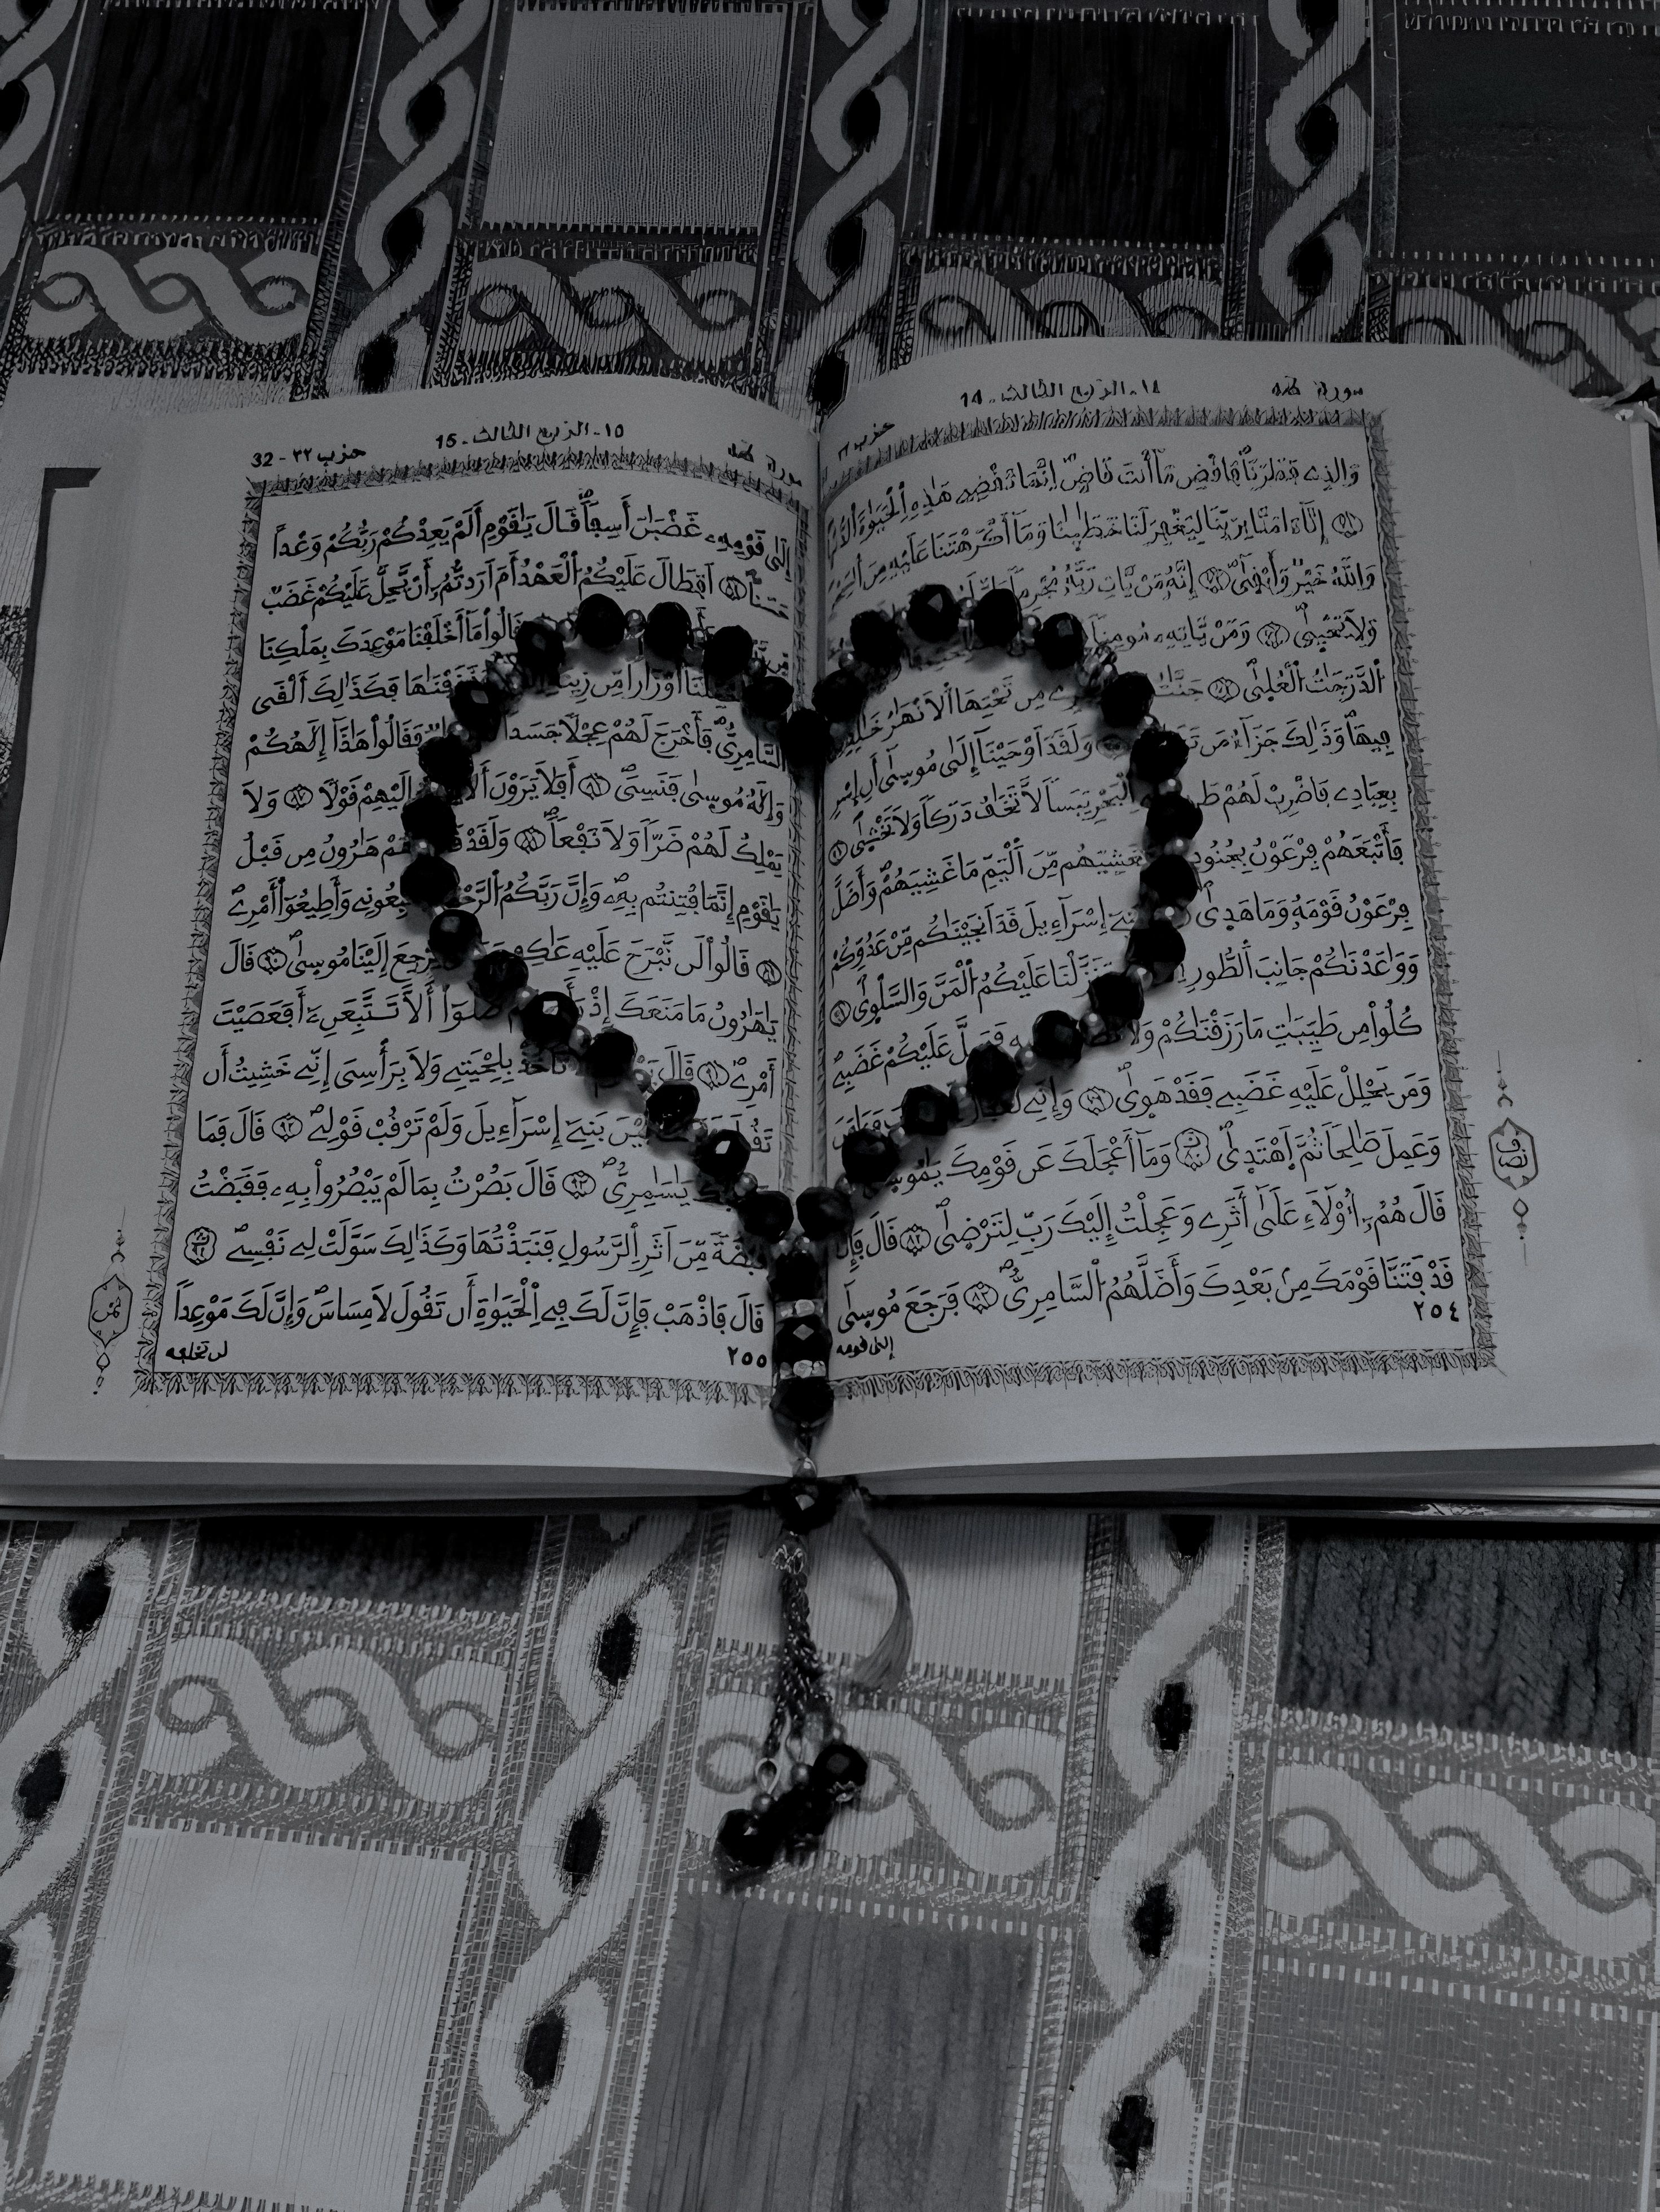 سورة طه
١٤ - الربع الثالث - 14
حزب
والذے فطرنا فافض ما أنت فاض انما تفضے هذه الحيوة الدنيا
٧١ إنا ءامنا بربنا ليغفر لنا خطينا وما أكرهتنا عليه من السحر
والله خير وأبفى ٧٢ إنه من يات ربه مجرما
ولا تحيى ٧٣ ومن ياته مومنا
الدرجات العلى ٧٤ جنات من تحتها الانهار خلدين
فيها وذلك جزاء من ولقد اوحينا إلى موسى أن اسر
بعبادے فاضرب لهم البحر يبسا لا تخف دركا ولا تخشى
فأتبعهم فرعون بجنوده فغشيهم من اليم ما غشيهم وأضل
فرعون فومه وما هدى إسراءيل فد انجينكم من عدوكم
ووعدنكم جانب الطور ونزلنا عليكم المن والسلوى
كلوا من طيبت ما رزفنكم ولا عليكم غضبے
ومن يحلل عليه غضبے ففد هوى ٧٩ وإنے
وعمل صلحا ثم اهتدى ٨٠ وما أعجلك عن فومك يموسى
قال هم أولاء على أثرے وعجلت إليك رب لترضى ٨٢ قال فإنا
فد فتنا فومك من بعدك وأضلهم السامرى ٨٣ فرجع موسى
٢٥٤
إلى فومه
نصف
سورة طه
١٥ - الربع الثالث - 15
حزب ٣٢ - 32
إلى فومه غضبن أسفا قال يفوم ألم يعدكم ربكم وعدا
حسنا افطال عليكم العهد أم اردتم أن يحل عليكم غضب
فالوا ما أخلفنا موعدك بملكنا
أوزارا من زينة ففذفنها فكذلك ألفى
السامرى فأخرج لهم عجلا جسدا ففالوا هذا إلهكم
وإله موسى فنسى أفلا يرون إليهم فولا ولا
يملك لهم ضرا ولا نفعا ولفد هرون من فبل
يفوم إنما فتنتم به وإن ربكم وأطيعوا أمرى
٨٩ فالوا لن نبرح عليه يرجع إلينا موسى ٩٠ فال
يهرون ما منعك إذ ضلوا ألا تتبعن أفعصيت
أمرى ٩١ فال تاخذ بلحيتے ولا برأسى إنے خشيت أن
تفول بين بنے إسراءيل ولم ترفب فولى ٩٢ فال فما
يسمرى ٩٣ فال بصرت بما لم يبصروا به ففبضت
فبضة من اثر الرسول فنبذتها وكذلك سولت لے نفسى
فال فاذهب فإن لك فے الحيوة أن تفول لا مساس وإن لك موعدا
٢٥٥
لن تخلفه
ثمن